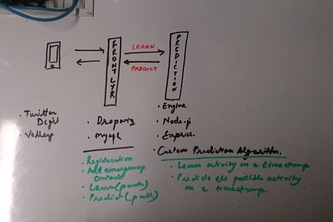 FRONTLYR
LEARN
PREDICT
PREDICTION
. Twitter
Digit
. Volley
. Dropwiz
. Mysql
. Registration
. Add emergency
contacts
. Learn (push)
. Predict (pull)
. Engine
. Node.js
. Express
. Custom Prediction Algorithm.
. Learn activity on a timestamp
. Predict the possible activity
on a timestamp.